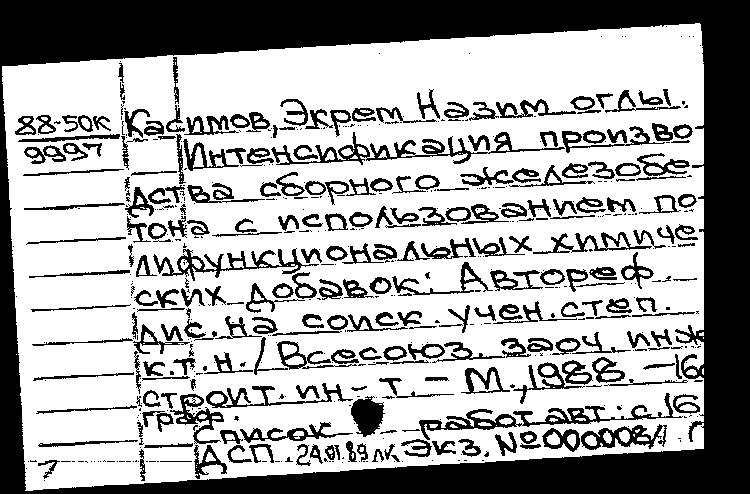 88-50К
9997
Касимов, Экрем Назим оглы.
Интенсификация произво-
дства сборного железобе-
тона с использованием по-
лифункциональных химиче-
ских добавок: Автореф.
дис. на соиск. учен. степ.
к.т.н. / Всесоюз. заоч. инж
строит. ин-т. - М., 1988. - 16с
граф.
Список работ авт.: с. 16
ДСП. 24.01.89 лк Экз. №